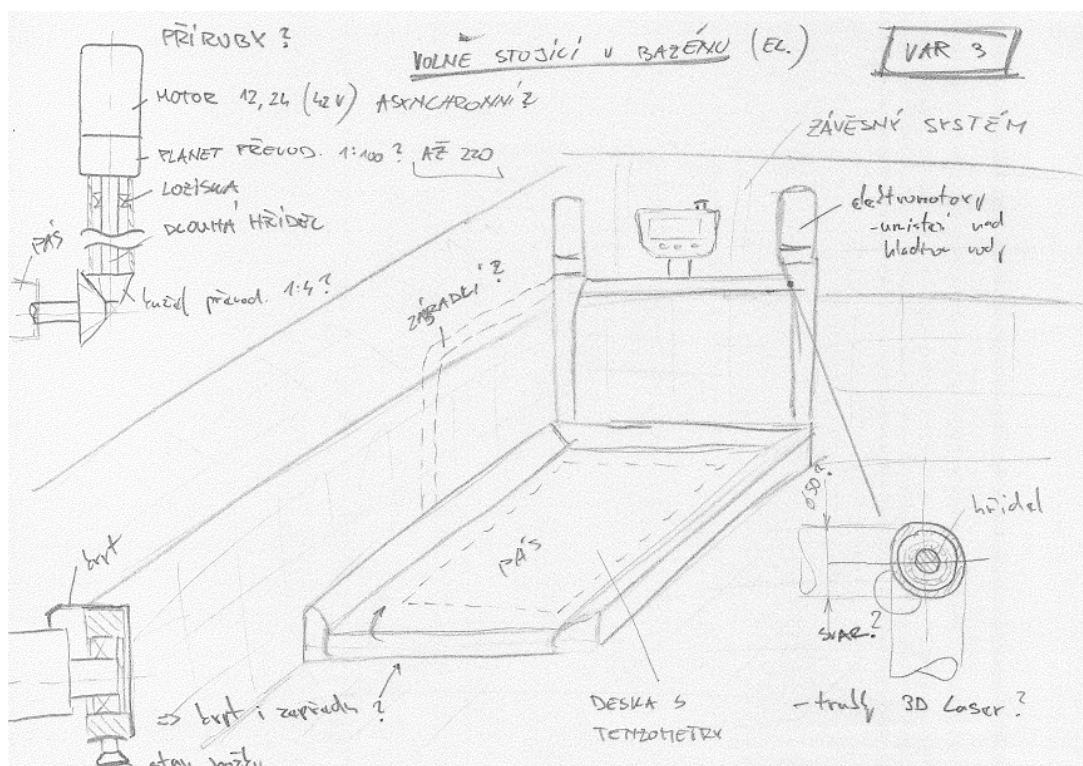 PŘÍRUBY ?
VOLNĚ STOJÍCÍ V BAZÉNU (EL.)
VAR 3
MOTOR 12, 24 (42V) ASYNCHRONNÍ ?
PLANET PŘEVOD. 1:100 ? AŽ 220
LOŽISKA
DLOUHÁ HŘÍDEL
PÁS
kužel převod. 1:4 ?
ZÁVĚSNÝ SYSTÉM
elektromotory
- umístění nad
hladinou vody
ZÁBRADLÍ ?
PÁS
Ø50 ?
hřídel
SVAR ?
- trubky 3D Laser ?
DESKA S
TENZOMETRY
kryt
=> kryt i zepředu ?
stav. nožky